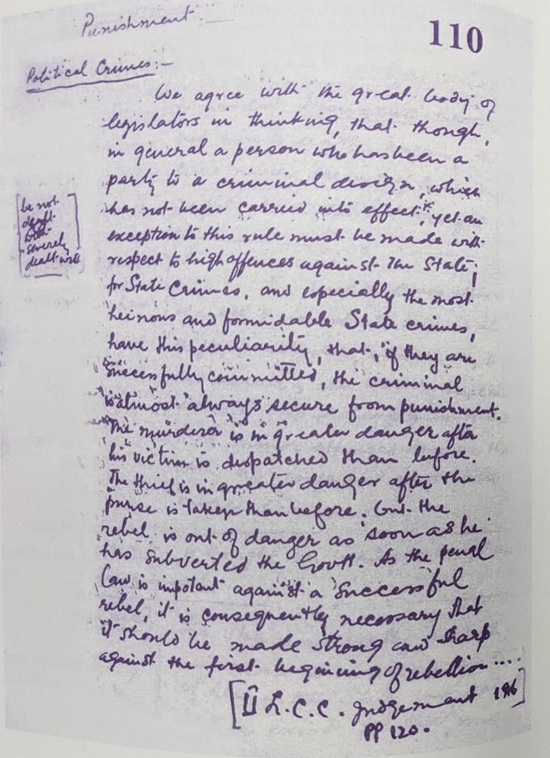 Punishment :-
110
Political Crimes:-
We agree with the great body of
legislators in thinking, that though,
in general a person who has been a
party to a criminal design, which
has not been carried into effect,* yet an
exception to this rule must be made with
respect to high offences against the State;
for State Crimes, and especially the most
heinous and formidable State crimes,
have this peculiarity, that, if they are
successfully committed, the criminal
is almost always secure from punishment.
The murderer is in greater danger after
his victim is despatched than before.
The thief is in greater danger after the
purse is taken than before. but the
rebel is out of danger as soon as he
has subverted the Govtt. As the penal
law is impotant against a successful
rebel, it is consequently necessary that
it should be made strong and sharp
against the first begining of rebellion....
[II L.C.C. Judgement 1916]
PP 120.
[be not
dealt
severely
dealt with]